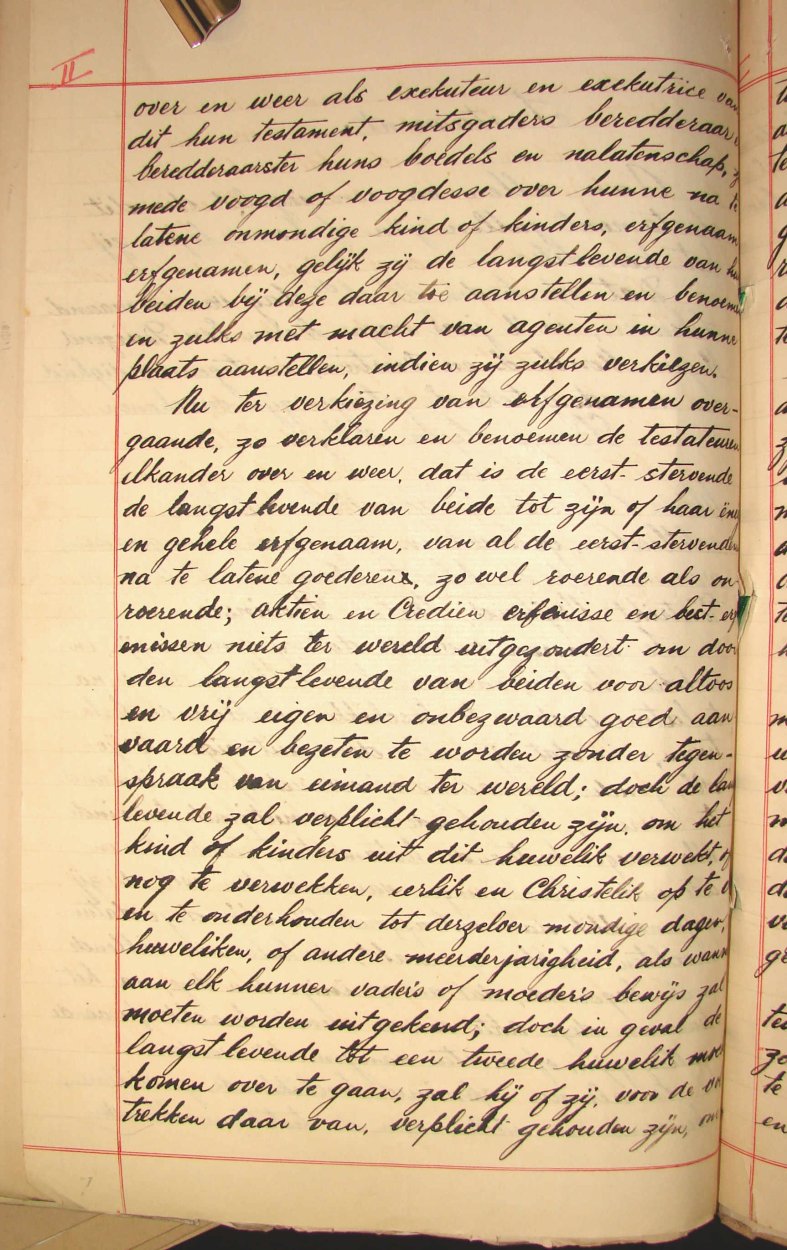 II
over en weer als exekuteur en exekutrice van
dit hun testament, mitsgaders beredderaar
beredderaarster huns boedels en nalatenschap,
mede voogd of voogdesse over hunne na te
latene onmondige kind of kinders, erfgenaam
erfgenamen, gelijk zij de langstlevende van hun
beiden bij deze daar toe aanstellen en benoemen
en zulks met macht van agenten in hunne
plaats aanstellen, indien zij zulks verkiezen.
Nu ter verkiezing van erfgenamen over-
gaande, zo verklaren en benoemen de testateuren
elkander over en weer, dat is de eerst-stervende
de langstlevende van beide tot zijn of haar
en gehele erfgenaam, van al de eerst-stervenden
na te latene goederen, zo wel roerende als on-
roerende; aktien en Credien erfenisse en best-erf
enissen niets ter wereld uitgezondert om door
den langstlevende van beiden voor altoos
en vrij eigen en onbezwaard goed aan
vaard en bezeten te worden zonder tegen-
spraak van eimand ter wereld; doch de
levende zal verplicht gehouden zijn, om het
kind of kinders uit dit huwelik verwekt, of
nog te verwekken, eerlik en Christelik op te
en te onderhouden tot derzelver mondige dagen,
huweliken, of andere meerderjarigheid, als wann
aan elk hunner vaders of moeders bewijs zal
moeten worden uitgekeerd; doch in geval de
langstlevende tot een tweede huwelik
komen over te gaan, zal hij of zij, voor de
trekken daar van, verplicht gehouden zijn, om